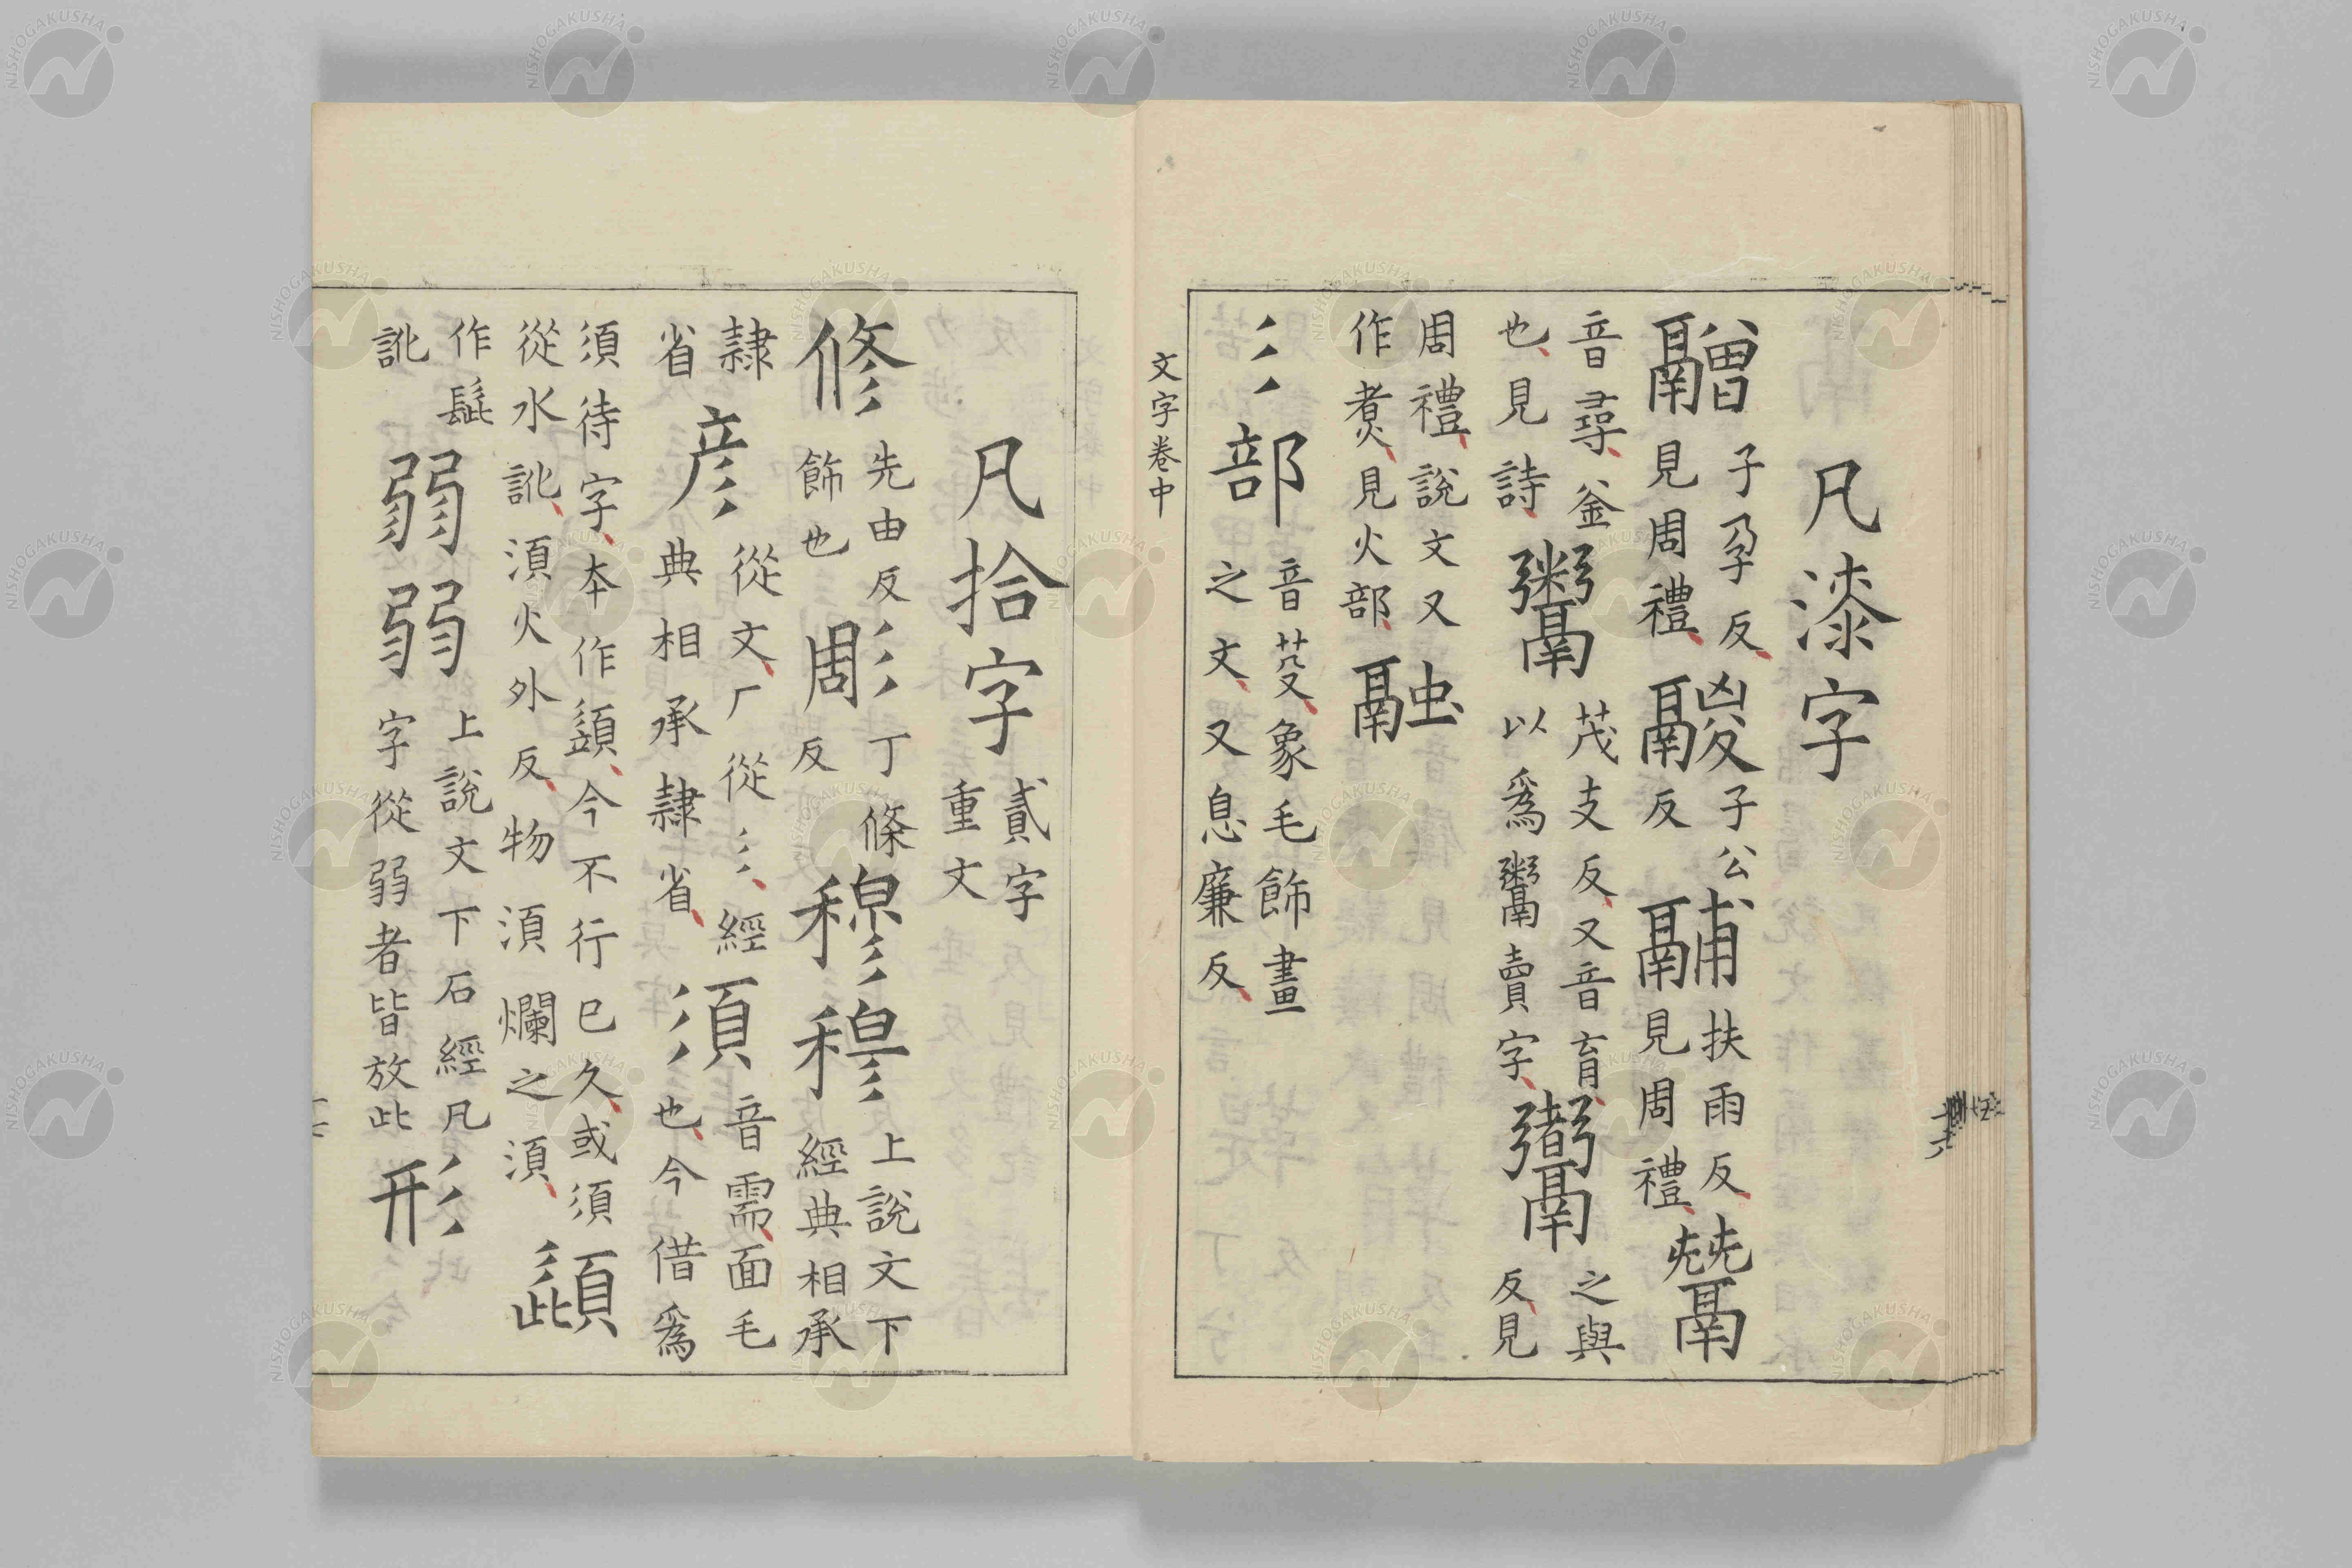 凡漆字
䰝子孕反見周禮鬷子公反鬴扶雨反見周禮鬵
音尋釜也見詩鬻茂支反又音育以爲鬻賣字𩱰之與反見
周禮說文又作煑見火部融
彡部音芟象毛飾畫之文又息廉反
文字卷中
凡拾字貳字重文
修先由反飾也彫丁條反穆穆上說文下經典相承
隷省彥從文厂從彡經典相承隷省須音需面毛也今借爲
須待字夲作䇓今不行已久或須從水訛湏火外反物湏爛之湏頾
作髭訛弱弱上說文下石經凡字從弱者皆放此形
NISHOGAKUSHA